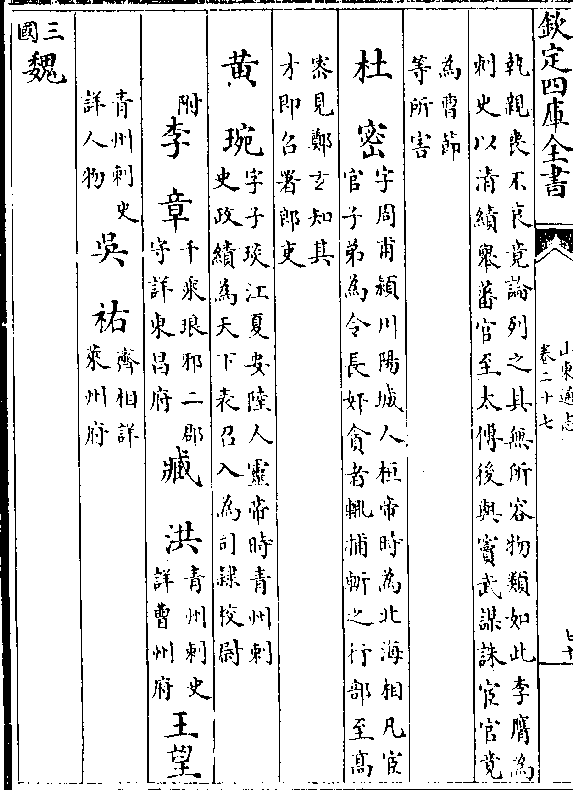 欽定四庫全書
山東通志
卷二十七
乾親喪不哀竟論列之其無所容物類如此李膺為
刺史以清績蕃官至太傅後與竇武謀誅宦官竟
為曹節
等所害
杜密 字周甫潁川陽城人桓帝時為北海相凡宦
官子弟為令長奸貪者輒捕斬之行部至高
密見鄭玄知其
才即召署郎吏
黃琬 字子琰江夏安陸人靈帝時青州刺
史政績為天下表召入為司隸校尉
附李章 千乘琅邪二郡守詳東昌府 臧洪 青州刺史詳曹州府 王望
青州刺史詳人物 吳祐 齊相詳萊州府
三國魏